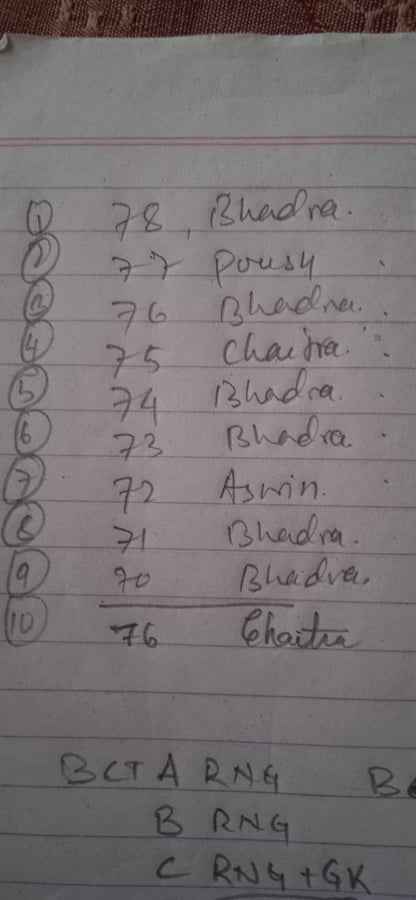 ① 78, Bhadra.
② 77 Poush
③ 76 Bhadra.
④ 75 Chaitra.
⑤ 74 Bhadra.
⑥ 73 Bhadra.
⑦ 72 Aswin.
⑧ 71 Bhadra.
⑨ 70 Bhadra.
⑩ 76 Chaitra
BCT A RNG
B RNG
C RNG + GK